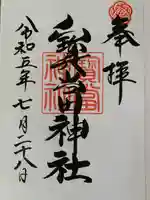 奉拝
寶當神社
令和五年七月二十八日